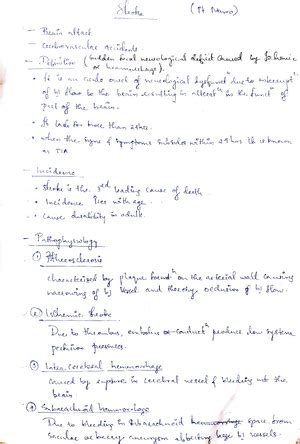 Stroke (Pt Neuro)
- Brain attack
- Cerebrovascular accidents
- Definition (sudden focal neurological deficit caused by Ischemic or hemorrhage).
• It is an acute onset of neurological dysfunctn due to interruptn
of bl flow to the brain resulting in alteratn in the functn of
part of the brain.
• It lasts for more than 24hrs.
• when the signs & symptoms subsides within 24 hrs it is known
as TIA
- Incidence
• stroke is the 3rd leading cause of death
• Incidence rises with age
• Cause disability in adults.
- Pathophysiology
① Atherosclerosis
characterised by plaque formatn on the arterial wall causing
narrowing of bl vessel and thereby occlusion of bl flow.
② Ischemic stroke
Due to thrombus, embolus or conductn produce low systemic
perfusion pressures.
③ Intra cerebral hemorrhage
caused by rupture in cerebral vessel & bleeding into the
brain
④ Subarachnoid hemorrhage
Due to bleeding in subarachnoid space from
saccular or berry aneurysm affecting large bl vessels.